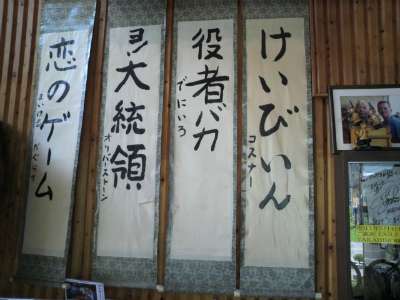 けいびいん
コスナー
役者バカ
でにいろ
ヨン大統領
オリバ・ストーン
恋のゲーム